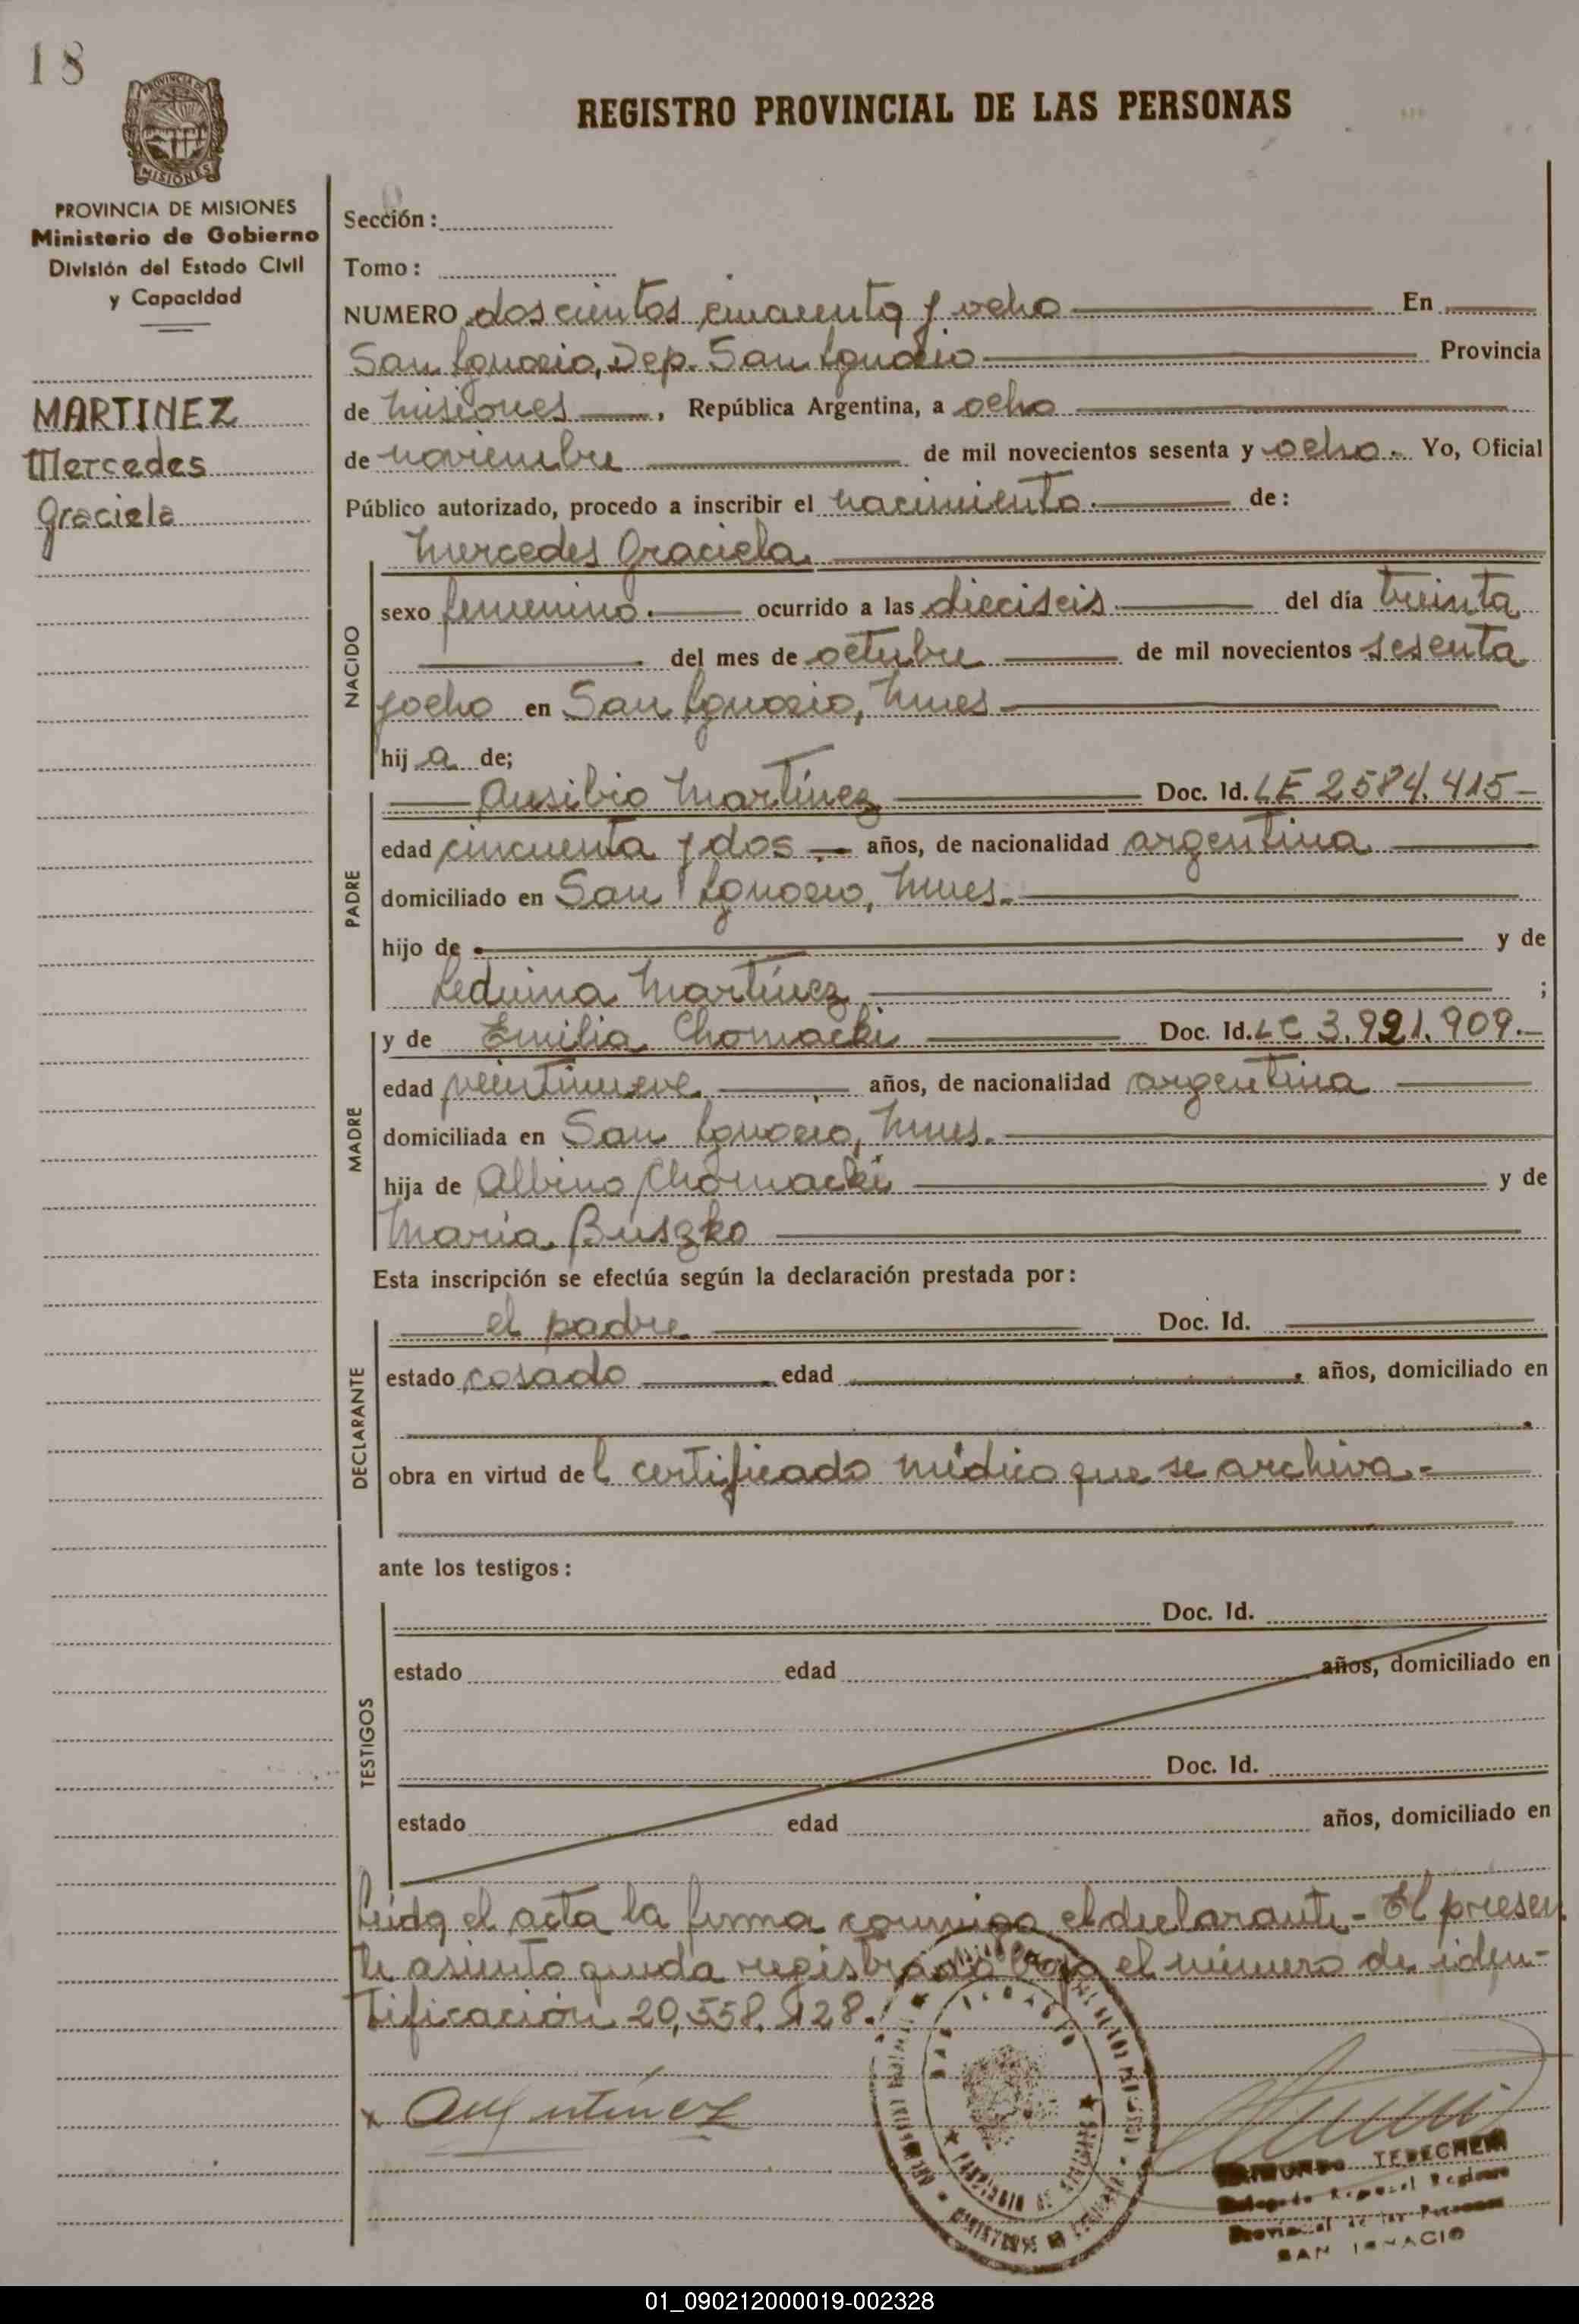 18
PROVINCIA DE
MISIONES
REGISTRO PROVINCIAL DE LAS PERSONAS
PROVINCIA DE MISIONES
Ministerio de Gobierno
División del Estado Civil
y Capacidad
MARTINEZ
Mercedes
Graciela
Sección:
Tomo:
NUMERO doscientos cincuenta y ocho En
San Ignacio, Dep. San Ignacio Provincia
de Misiones, República Argentina, a ocho
de noviembre de mil novecientos sesenta y ocho. Yo, Oficial
Público autorizado, procedo a inscribir el nacimiento de:
NACIDO
Mercedes Graciela
sexo femenino. ocurrido a las dieciseis del día treinta
del mes de octubre de mil novecientos sesenta
y ocho en San Ignacio, Mnes
hij a de;
PADRE
Ausibio Martínez Doc. Id. LE 2584.415
edad cincuenta y dos años, de nacionalidad argentina
domiciliado en San Ignacio, Mnes.
hijo de y de
Leduina Martínez ;
MADRE
y de Emilia Chomacki Doc. Id. LC 3.921.909.
edad veintinueve años, de nacionalidad argentina
domiciliada en San Ignacio, Mnes.
hija de Albino Chomacki y de
María Buszko
Esta inscripción se efectúa según la declaración prestada por:
DECLARANTE
el padre Doc. Id.
estado casado edad años, domiciliado en
obra en virtud del certificado médico que se archiva.
ante los testigos:
TESTIGOS
Doc. Id.
estado edad años, domiciliado en
Doc. Id.
estado edad años, domiciliado en
Leída el acta la firma conmigo el declarante - El presen
te asiento queda registrado bajo el número de iden-
tificación 20,558.128.
TEDECHEM
Delegado Regional Registro
Provincial de las Personas
SAN IGNACIO
01_090212000019-002328